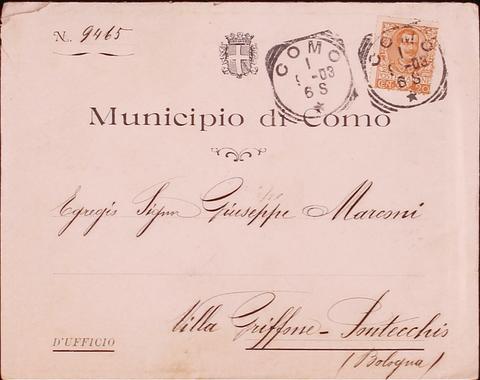 N. 9465
COMO
1
-03
6 S
COMO
1
-03
6 S
CENT. 20
Municipio di Como
Egregio Signr Giuseppe Marconi
Villa Griffone - Pontecchio
(Bologna)
D'UFFICIO